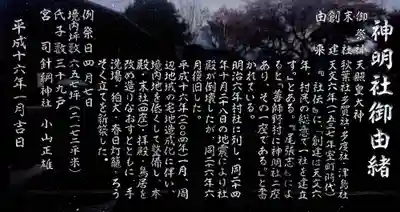 神明社御由緒
御祭神 天照皇大神
末社 秋葉社・多賀社・多度社・津島社
創建 天文六年(一五三七年室町時代)
由来 『社伝に、「創建は天文六
年、村民の総意で一社を建立
す。」とある。『尾張志』によ
ると、「善師野村に神明社二座
あり、その一座である。」と書
かれている。
明治六年村社に列し、同二十四
年十月二十八日の地震により社
殿が倒壊したが、同二十六年六
月復旧した。
平成十六(二〇〇四)年一月、周
辺地域の宅地造成化に伴い、
境内地を低くして整備し、本
殿・末社四座・拝殿・鳥居を
改め造りなおすとともに、手
洗場・狛犬・春日灯籠・ろう
そく立を新築した。
例祭日 四月七日
境内坪数 六五七坪(二一七二平米)
氏子数 三十九戸
宮司 針綱神社 小山正雄
平成十六年一月吉日